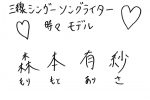 三線シンガーソングライター
時々モデル
森本有紗
もりもとありさ